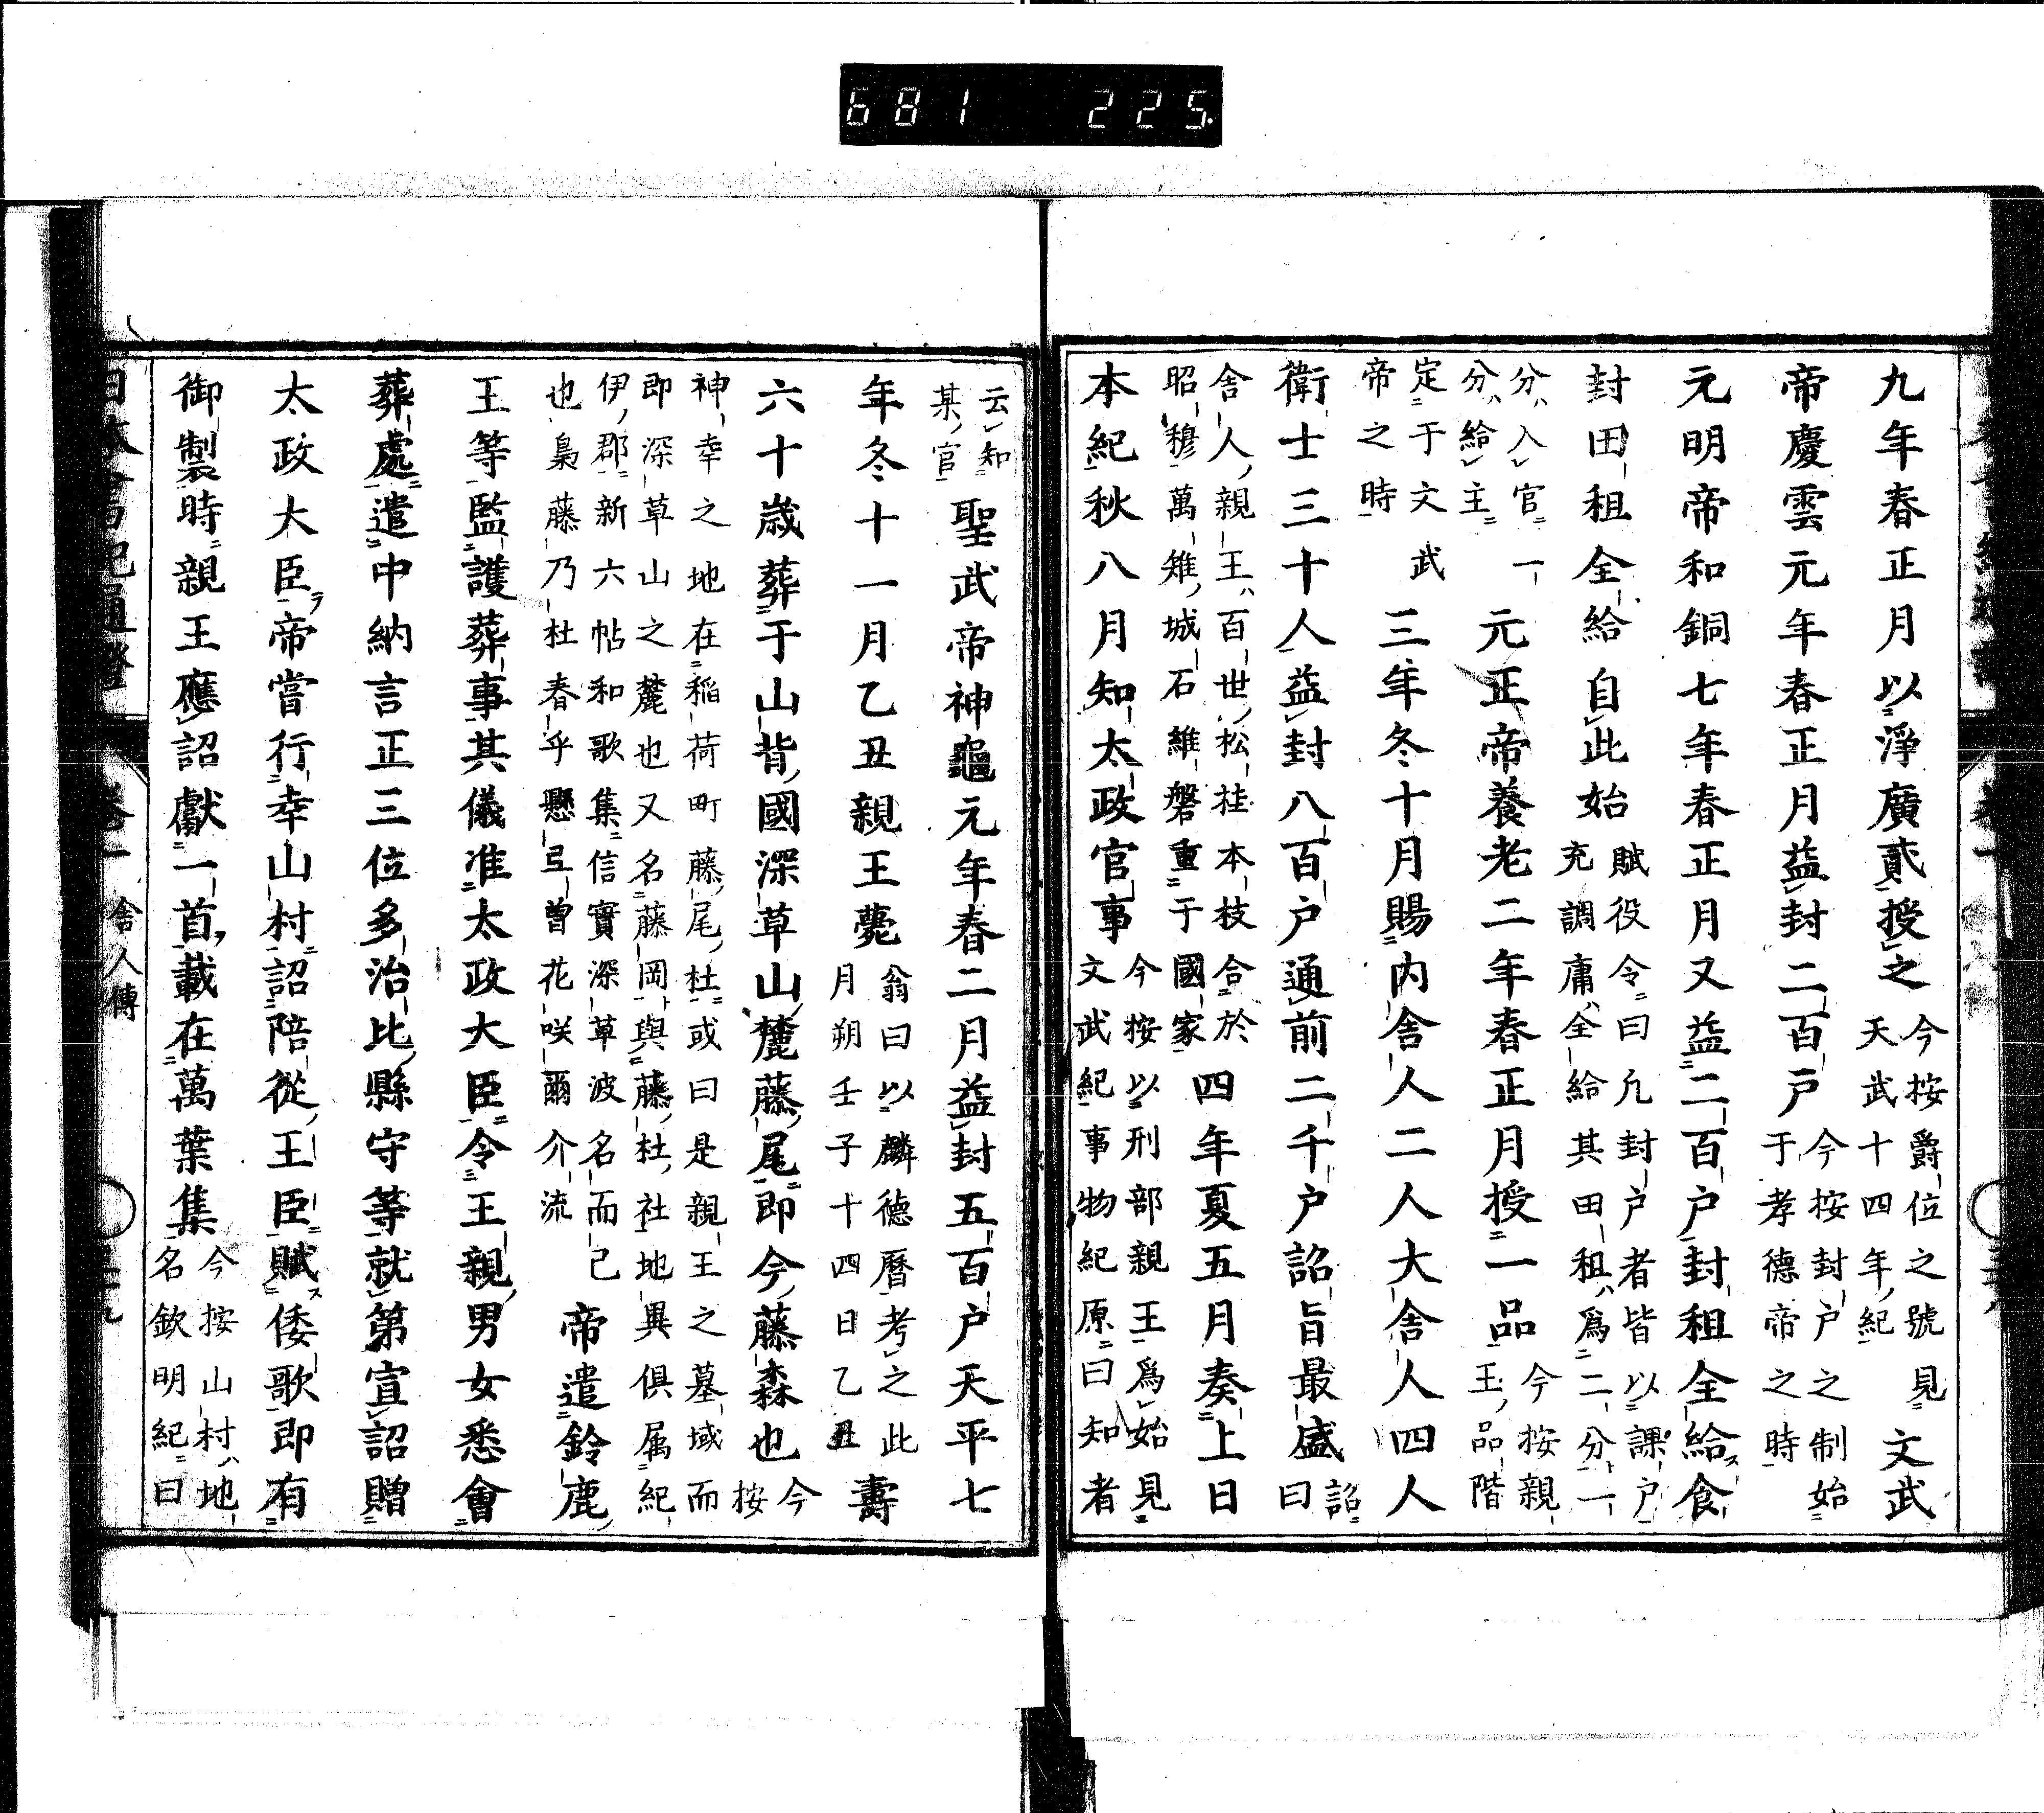 681 225.
九年春正月以淨廣貳授之今按爵位之號見
天武十四年紀文武
帝慶雲元年春正月益封二百戸今按封戸之制始
于孝德帝之時
元明帝和銅七年春正月又益二百戸封租全給食
封田租全給自此始賦役令曰凡封戸者皆以課戸
充調庸全給其田租爲二分一
分入官一
分給主元正帝養老二年春正月授一品今按親
王品階
定于文武
帝之時三年冬十月賜内舎人二人大舎人四人
衛士三十人益封八百戸通前二千戸詔旨最盛詔
曰
舎人親王百世松桂本枝合於
昭穆萬雉城石維磐重于國家四年夏五月奏上日
本紀秋八月知太政官事今按以刑部親王爲始見
文武紀事物紀原曰知者
云知
某官聖武帝神龜元年春二月益封五百戸天平七
年冬十一月乙丑親王薨翁曰以麟德暦考之此
月朔壬子十四日乙丑壽
六十歳葬于山背國深草山麓藤尾即今藤森也今
按
神幸之地在稲荷町藤尾杜或曰是親王之墓域而
即深草山之麓也又名藤岡與藤杜社地異倶属紀
伊郡新六帖和歌集信實深草波名而己
也梟藤乃杜春乎懸弖曽花咲爾介流帝遣鈴鹿
王等監護葬事其儀准太政大臣令王親男女悉會
葬處遣中納言正三位多治比縣守等就第宣詔贈
太政大臣帝嘗行幸山村詔陪從王臣賦倭歌即有
御製時親王應詔獻一首載在萬葉集今按山村地
名欽明紀曰
日本書紀通證 卷一 舎人傳